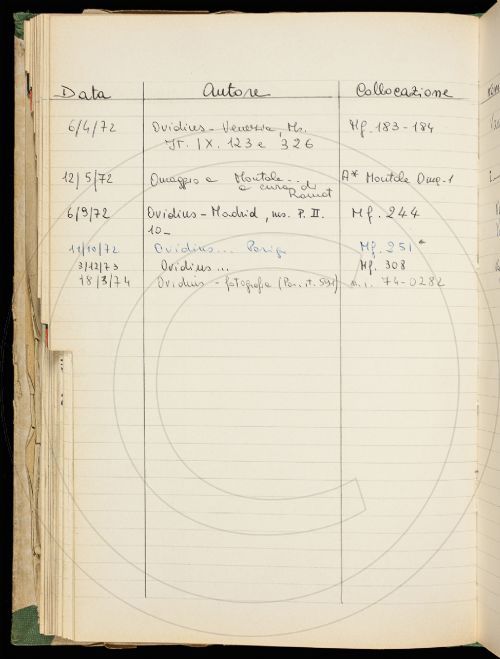 Data Autore Collocazione
6/4/72 Ovidius - Venezia, Ms. Mf. 183-184
It. IX. 123 e 326
12/5/72 Omaggio a Montale... A* Montale Omg. 1
a cura di
Ramat
6/9/72 Ovidius - Madrid, ms. P. II. Mf. 244
10_
11/10/72 Ovidius... Parigi Mf. 251*
3/12/73 Ovidius... Mf. 308
18/3/74 Ovidius - fotografie (Par. it. 591) 74-0282